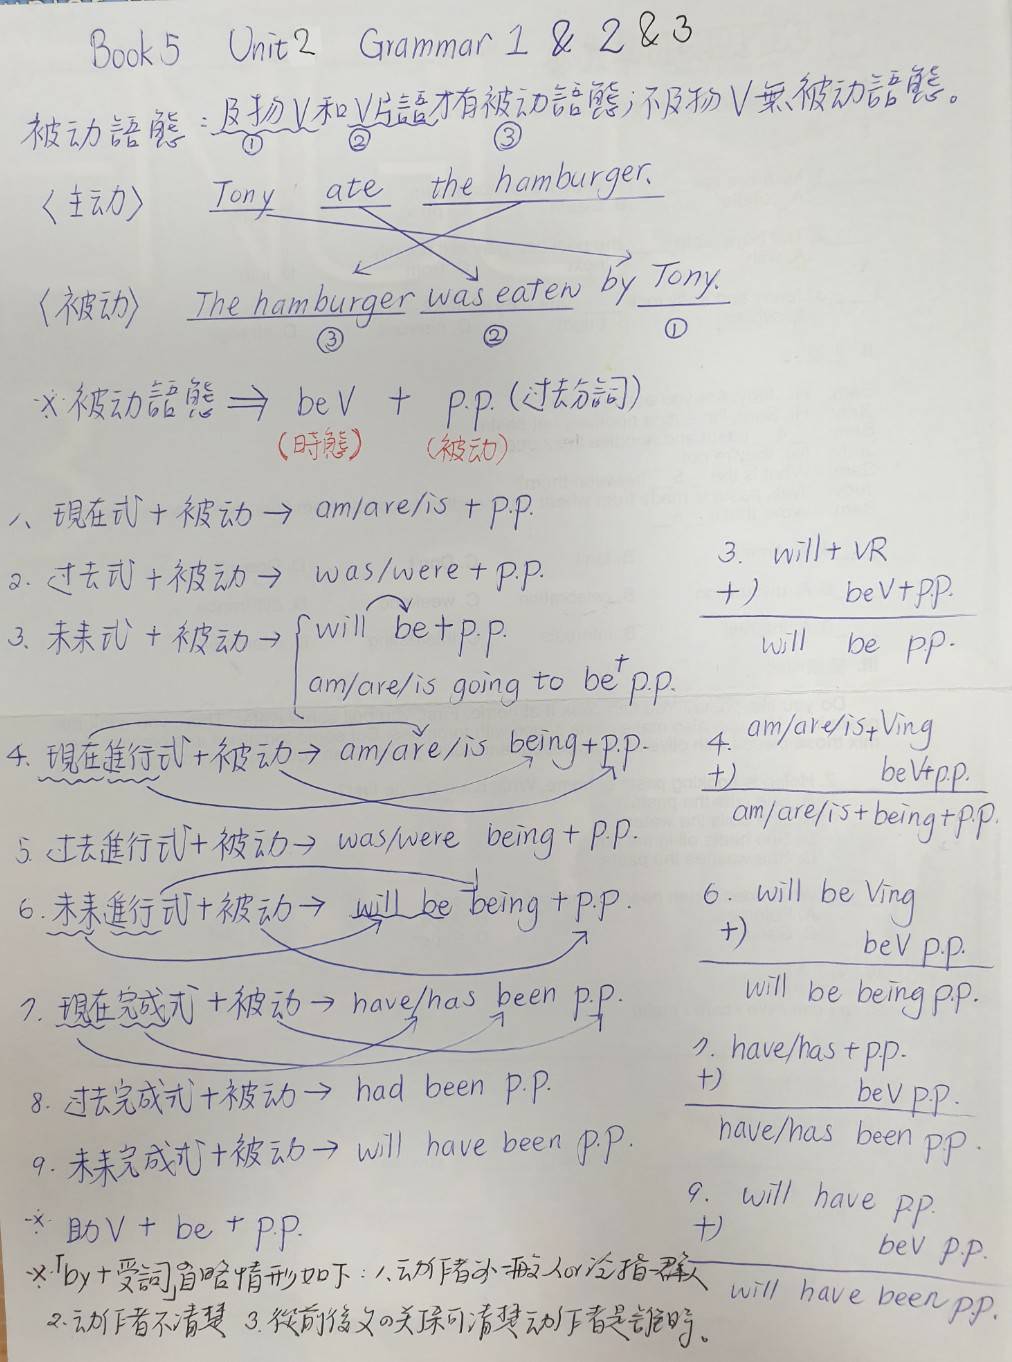 Book 5 Unit 2 Grammar 1 & 2 & 3
被动語態:及物V和V片語才有被动語態;不及物V無被动語態。
① ② ③
〈主动〉 Tony ate the hamburger.
〈被动〉 The hamburger was eaten by Tony.
③ ② ①
※被动語態 ⇒ beV + p.p. (过去分詞)
(時態) (被动)
1、現在式+被动→ am/are/is + p.p.
2. 过去式+被动→ was/were + p.p.
3、未来式+被动→ will be + p.p.
am/are/is going to be + p.p.
4. 現在進行式+被动→ am/are/is being + p.p.
5. 过去進行式+被动→ was/were being + p.p.
6. 未来進行式+被动→ will be being + p.p.
7. 現在完成式+被动→ have/has been p.p.
8. 过去完成式+被动→ had been p.p.
9. 未来完成式+被动→ will have been p.p.
※ 助V + be + p.p.
※「by+受詞」省略情形如下:1、动作者
or泛指群人
2.动作者不清楚 3.從前後文の关係可清楚动作者是誰時。
3. will + VR
+) beV + p.p.
will be p.p.
4. am/are/is + Ving
+) beV+p.p.
am/are/is + being + p.p.
6. will be Ving
+) beV p.p.
will be being p.p.
7. have/has + p.p.
+) beV p.p.
have/has been p.p.
9. will have p.p.
+) beV p.p.
will have been p.p.